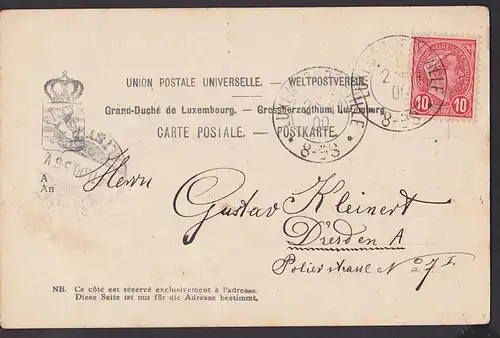 UNION POSTALE UNIVERSELLE. — WELTPOSTVEREIN.
Grand-Duché de Luxembourg. — Grossherzogthum Luxemburg.
CARTE POSTALE. — POSTKARTE.
10 10
8-9S
8-9S
A
An
Herrn
Gustav Kleinert
Dresden A
Polierstrasse No 7 I.
NB. Ce côté est réservé exclusivement à l'adresse.
Diese Seite ist nur für die Adresse bestimmt.